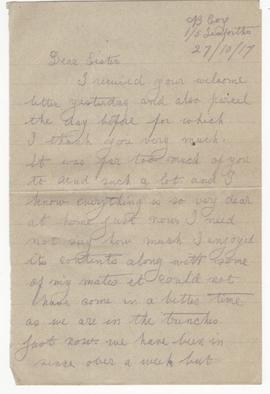 B Coy
1/5 Seaforths
27/10/17
Dear Sister
I recived your welcome
letter yesterday and also parcel
the day before for which
I thank you very much.
It was far too much of you
to send such a lot and I
know everything is so very dear
at home just now I need
not say how much I enjoyed
its contents along with some
of my mates it could not
have come in a better time
as we are in the trenches
just now we have been in
since over a week but